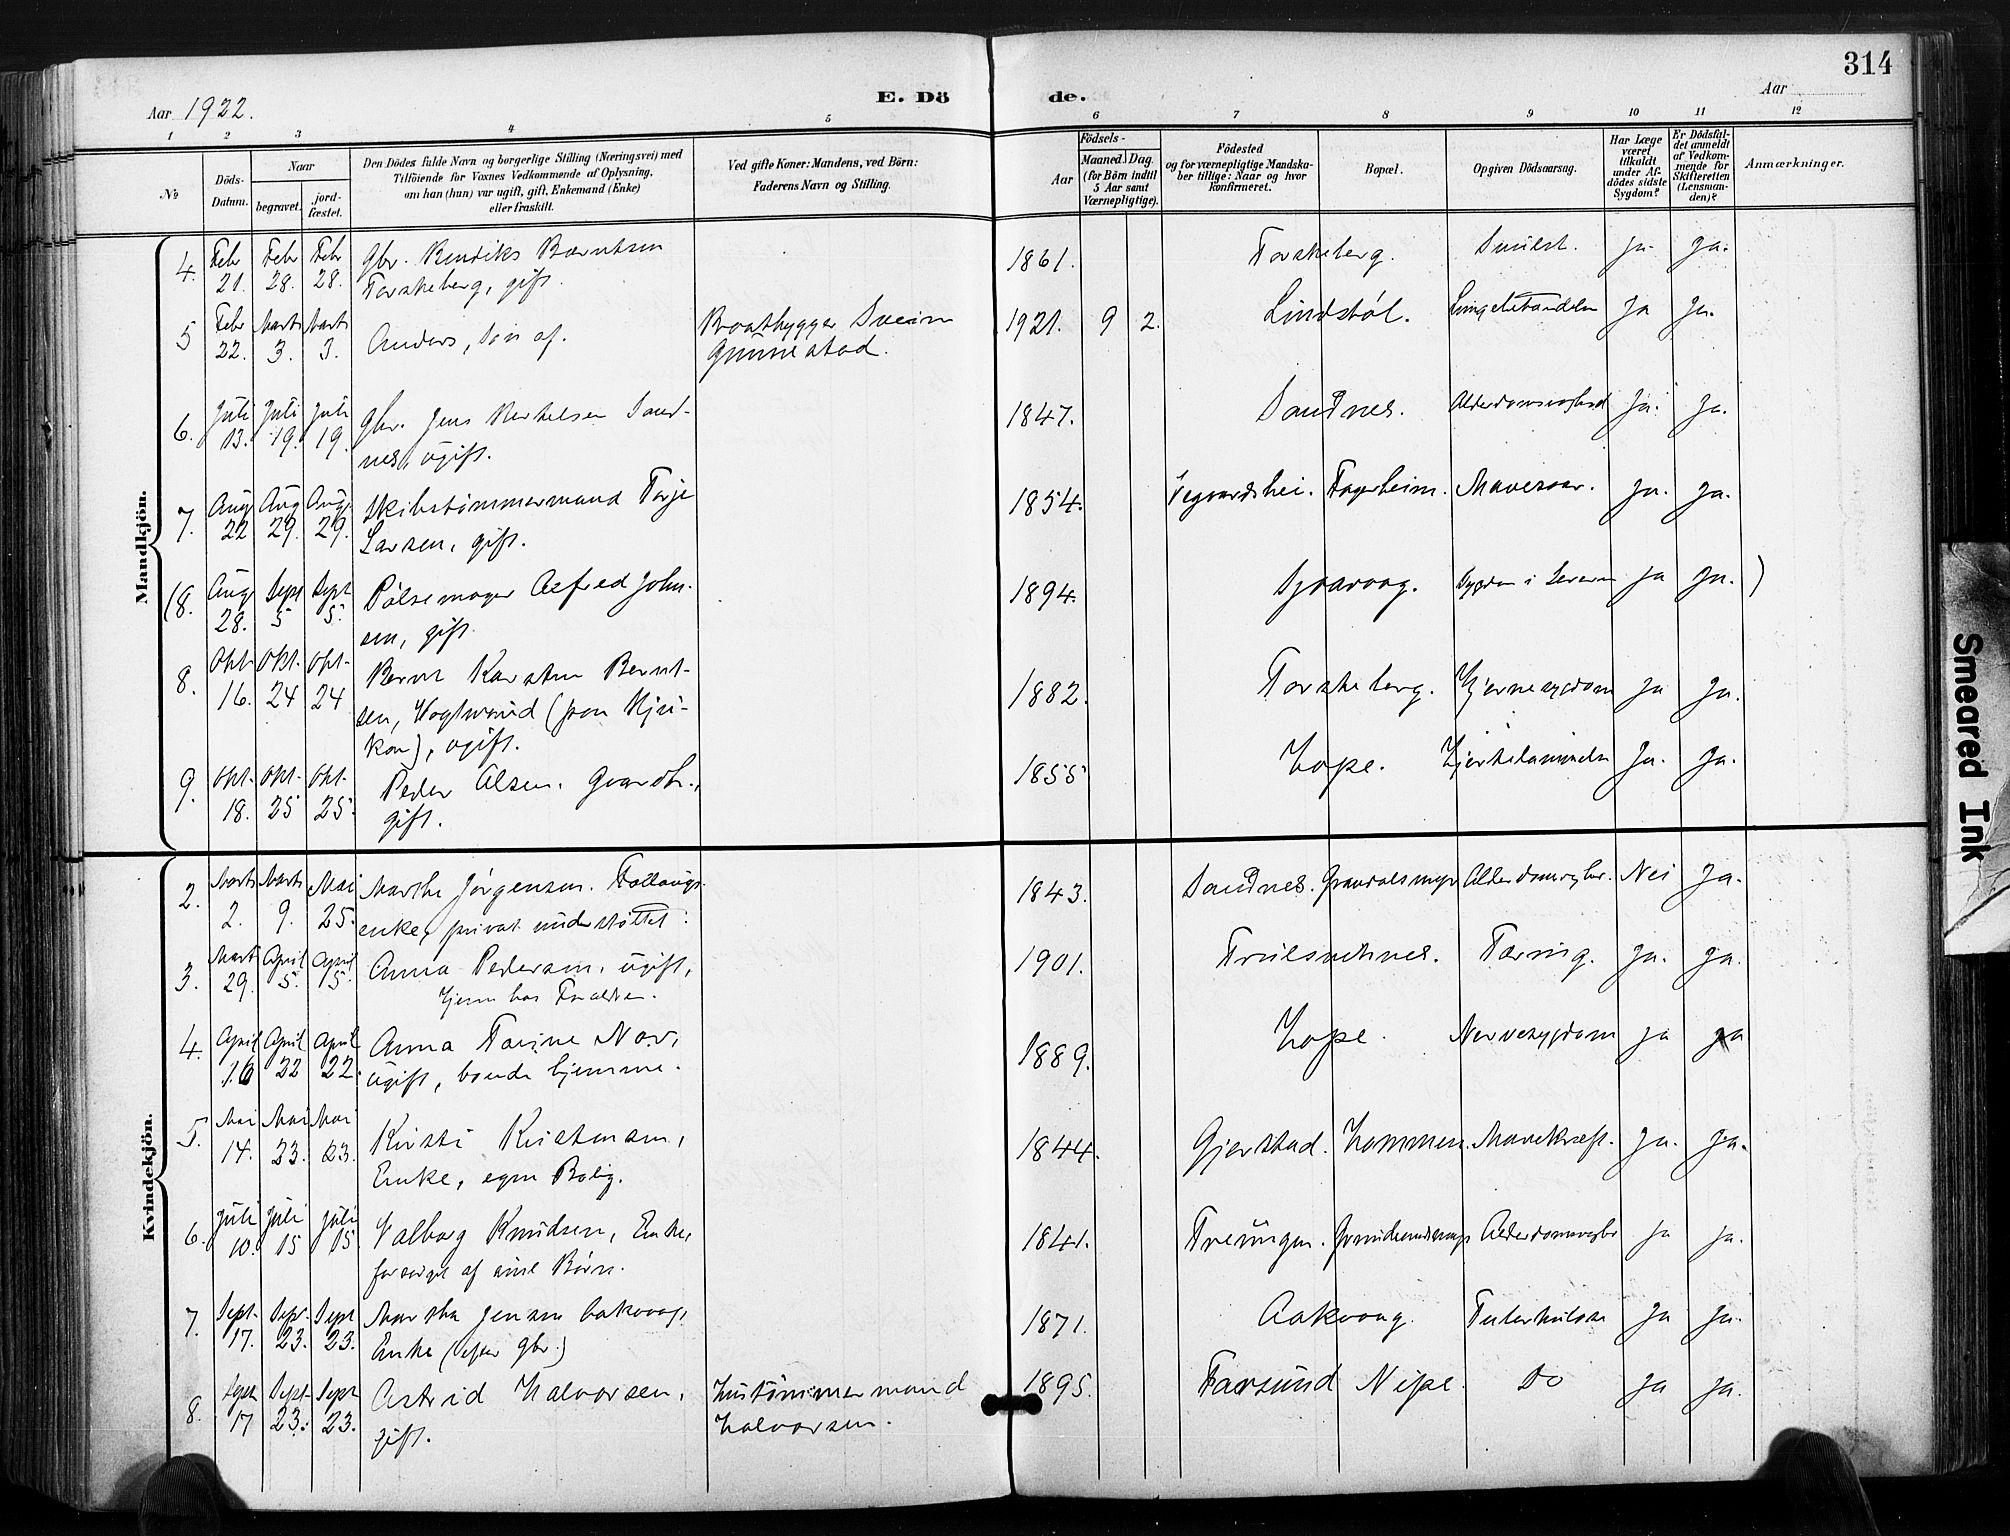 314
Aar 1922.
E. Döde.
Aar
1 2 3 4 5 6 7 8 9 10 11 12
№
Döds-Datum.
Naar
begravet.
jord-fæstet.
Den Dödes fulde Navn og borgerlige Stilling (Næringsvei) med
Tilföiende for Voxnes Vedkommende af Oplysning,
om han (hun) var ugift, gift, Enkemand (Enke)
eller fraskilt.
Ved gifte Koner: Mandens, ved Börn:
Faderens Navn og Stilling.
Födsels-
Aar
Maaned. Dag.
(for Börn indtil
5 Aar samt
Værnepligtige).
Födested
og for værnepligtige Mandska-
ber tillige: Naar og hvor
konfirmeret.
Bopæl.
Opgiven Dödsaarsag.
Har Læge
været
tilkaldt
under Af-
dödes sidste
Sygdom?
Er Dödsfal-
det anmeldt
af Vedkom-
mende for
Skifteretten
(Lensman-
den)?
Anmærkninger.
Mandkjön.
4. Febr 21. Febr 28. Febr 28. Gbr. Bendiks Berntsen
Torskeberg, gift. 1861. Torskeberg. ja. ja.
5 Febr 22. Marts 3. Marts 3. Anders, søn af. Baatbygger Svein
Gunnestad. 1921. 9 2. Lindstøl. Lungebetændelse Ja Ja.
6. Juli 13. Juli 19. Juli 19. Gbr. Jens Bertelsen Sand-
nes, ugift. 1847. Sandnes. Ja. Ja.
7. Aug 22 Aug 29. Aug 29. Skibstømmermand Terje
Larsen, gift. 1854. Vegaardshei. Fagerheim. Mavesaar. Ja. Ja.
(8. Aug 28. Sept 5 Sept 5. Pølsemager Alfred John-
sen, gift. 1894. Sygdom i Leveren Ja Ja. )
8. Okt 16. Okt. 24 Okt. 24 Bernt Karsten Bernt-
sen, Vogtmand (fra Rju-
kan), ugift. 1882. Torskeberg. Hjernesygdom Ja Ja.
9. Okt. 18. Okt. 25 Okt. 25. Peder Olsen. Gaardbr.,
gift. 1855 Hope. Hjertelammelse Ja. Ja.
Kvindekjön.
2. Marts 2. Marts 9. Mai 25. Marthe Jørgensen.
enke, privat understøttet. 1843. Sandnes. Nei Ja.
3. Marts 29. April 5. April 15. Anna Pedersen, ugift,
hjem hos Forældre. 1901. Tæring. Ja. Ja.
4. April 16 April 22 April 22. Anna Torine Nov,
ugift, boende hjemme. 1889. Hope. Nervesygdom Ja Ja
5. Mai 14. Mai 23. Mai 23. Kirsti Kristensen,
Enke, egen Bolig. 1844. Gjerstad. Hommen. Mavekræft. Ja. Ja.
6. Juli 10. Juli 15 Juli 15 Valborg Knudsen, Enke,
forsørget af sine Børn. 1841. Treungen. Ja Ja.
7. Sept. 17. Sept. 23. Sept 23. Martha Jensen Aakvaag,
Enke (efter gbr.) 1871. Aakvaag. Tuberkulose Ja Ja.
8. Sept 17 Sept. 23. Sept 23. Astrid Halvorsen,
gift. Hustømmermand
Halvorsen. 1895. Farsund Nipe. Do Ja Ja.
Smeared Ink